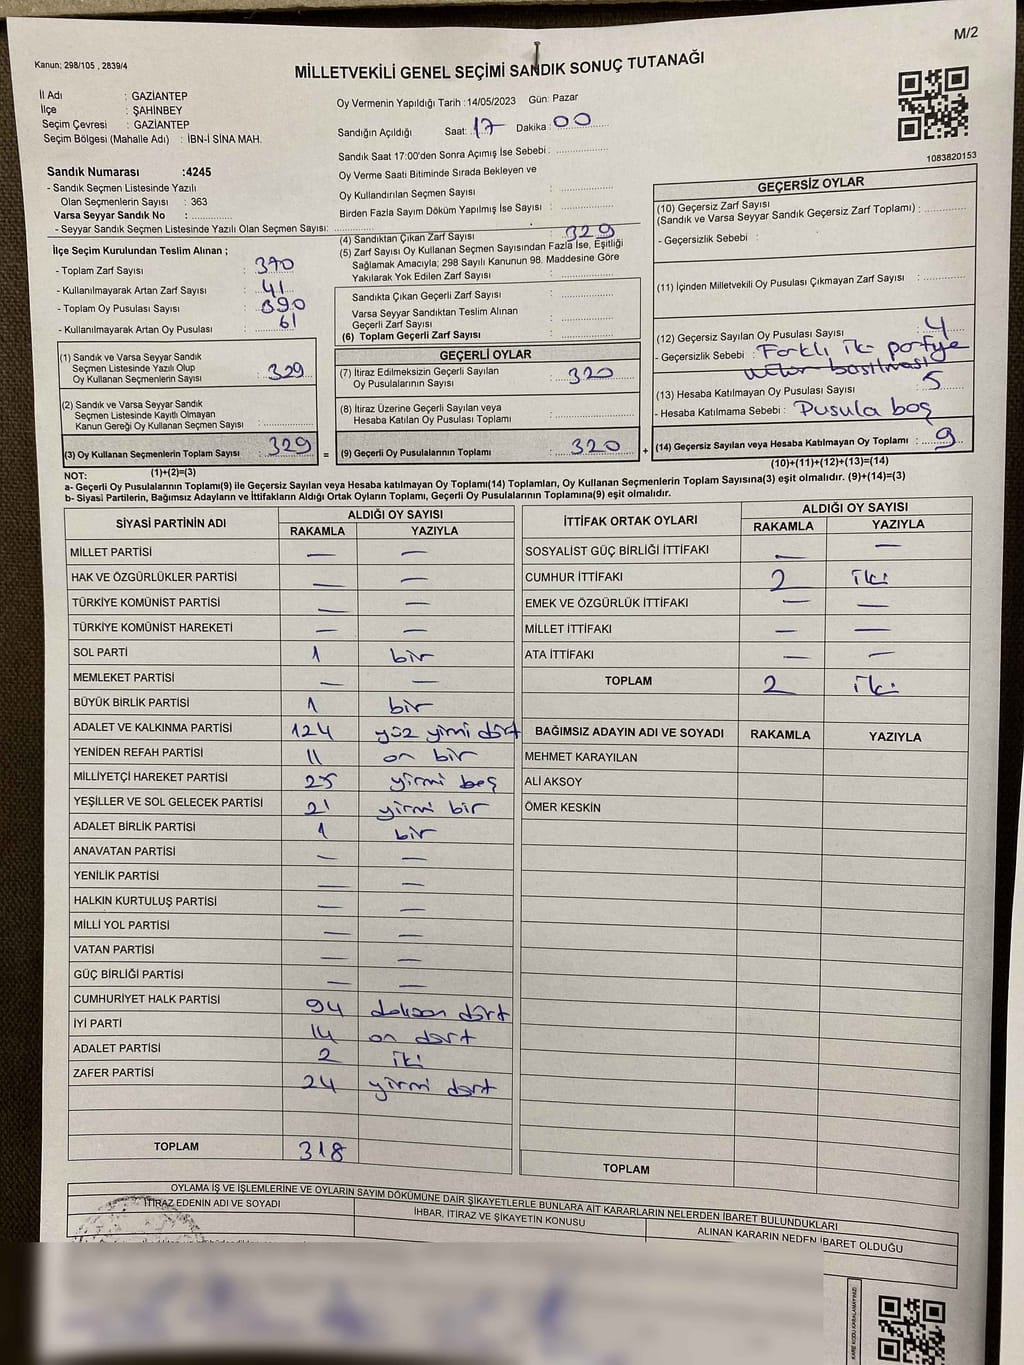 M/2
Kanun; 298/105 , 2839/4
MİLLETVEKİLİ GENEL SEÇİMİ SANDIK SONUÇ TUTANAĞI
İl Adı : GAZİANTEP
İlçe : ŞAHİNBEY
Seçim Çevresi : GAZİANTEP
Seçim Bölgesi (Mahalle Adı) : İBN-İ SİNA MAH.
Oy Vermenin Yapıldığı Tarih :14/05/2023 Gün: Pazar
Sandığın Açıldığı Saat: 17 Dakika: 00
Sandık Saat 17:00'den Sonra Açımış İse Sebebi :
Oy Verme Saati Bitiminde Sırada Bekleyen ve
Oy Kullandırılan Seçmen Sayısı :
Birden Fazla Sayım Döküm Yapılmış İse Sayısı :
1083820153
Sandık Numarası :4245
- Sandık Seçmen Listesinde Yazılı
Olan Seçmenlerin Sayısı : 363
Varsa Seyyar Sandık No :
- Seyyar Sandık Seçmen Listesinde Yazılı Olan Seçmen Sayısı:
İlçe Seçim Kurulundan Teslim Alınan ;
- Toplam Zarf Sayısı : 370
- Kullanılmayarak Artan Zarf Sayısı : 41
- Toplam Oy Pusulası Sayısı : 390
- Kullanılmayarak Artan Oy Pusulası : 61
(1) Sandık ve Varsa Seyyar Sandık
Seçmen Listesinde Yazılı Olup
Oy Kullanan Seçmenlerin Sayısı : 329
(2) Sandık ve Varsa Seyyar Sandık
Seçmen Listesinde Kayıtlı Olmayan
Kanun Gereği Oy Kullanan Seçmen Sayısı :
(3) Oy Kullanan Seçmenlerin Toplam Sayısı : 329 =
(1)+(2)=(3)
(4) Sandıktan Çıkan Zarf Sayısı : 329
(5) Zarf Sayısı Oy Kullanan Seçmen Sayısından Fazla İse, Eşitliği
Sağlamak Amacıyla; 298 Sayılı Kanunun 98. Maddesine Göre
Yakılarak Yok Edilen Zarf Sayısı :
Sandıkta Çıkan Geçerli Zarf Sayısı :
Varsa Seyyar Sandıktan Teslim Alınan
Geçerli Zarf Sayısı :
(6) Toplam Geçerli Zarf Sayısı :
GEÇERLİ OYLAR
(7) İtiraz Edilmeksizin Geçerli Sayılan
Oy Pusulalarının Sayısı : 320
(8) İtiraz Üzerine Geçerli Sayılan veya
Hesaba Katılan Oy Pusulası Toplamı :
(9) Geçerli Oy Pusulalarının Toplamı : 320 +
GEÇERSİZ OYLAR
(10) Geçersiz Zarf Sayısı
(Sandık ve Varsa Seyyar Sandık Geçersiz Zarf Toplamı) :
- Geçersizlik Sebebi :
(11) İçinden Milletvekili Oy Pusulası Çıkmayan Zarf Sayısı :
(12) Geçersiz Sayılan Oy Pusulası Sayısı : 4
- Geçersizlik Sebebi : Farklı iki partiye
mühür basılması
(13) Hesaba Katılmayan Oy Pusulası Sayısı : 5
- Hesaba Katılmama Sebebi : Pusula boş
(14) Geçersiz Sayılan veya Hesaba Katılmayan Oy Toplamı : 9
(10)+(11)+(12)+(13)=(14)
NOT:
a- Geçerli Oy Pusulalarının Toplamı(9) ile Geçersiz Sayılan veya Hesaba Katılmayan Oy Toplamı(14) Toplamları, Oy Kullanan Seçmenlerin Toplam Sayısına(3) eşit olmalıdır. (9)+(14)=(3)
b- Siyasi Partilerin, Bağımsız Adayların ve İttifakların Aldığı Ortak Oyların Toplamı, Geçerli Oy Pusulalarının Toplamına(9) eşit olmalıdır.
SİYASİ PARTİNİN ADI ALDIĞI OY SAYISI
RAKAMLA YAZIYLA
MİLLET PARTİSİ — —
HAK VE ÖZGÜRLÜKLER PARTİSİ — —
TÜRKİYE KOMÜNİST PARTİSİ — —
TÜRKİYE KOMÜNİST HAREKETİ — —
SOL PARTİ 1 bir
MEMLEKET PARTİSİ — —
BÜYÜK BİRLİK PARTİSİ 1 bir
ADALET VE KALKINMA PARTİSİ 124 yüz yirmi dört
YENİDEN REFAH PARTİSİ 11 on bir
MİLLİYETÇİ HAREKET PARTİSİ 25 yirmi beş
YEŞİLLER VE SOL GELECEK PARTİSİ 21 yirmi bir
ADALET BİRLİK PARTİSİ 1 bir
ANAVATAN PARTİSİ — —
YENİLİK PARTİSİ — —
HALKIN KURTULUŞ PARTİSİ — —
MİLLİ YOL PARTİSİ — —
VATAN PARTİSİ — —
GÜÇ BİRLİĞİ PARTİSİ — —
CUMHURİYET HALK PARTİSİ 94 doksan dört
İYİ PARTİ 14 on dört
ADALET PARTİSİ 2 iki
ZAFER PARTİSİ 24 yirmi dört
TOPLAM 318
İTTİFAK ORTAK OYLARI ALDIĞI OY SAYISI
RAKAMLA YAZIYLA
SOSYALİST GÜÇ BİRLİĞİ İTTİFAKI — —
CUMHUR İTTİFAKI 2 iki
EMEK VE ÖZGÜRLÜK İTTİFAKI — —
MİLLET İTTİFAKI — —
ATA İTTİFAKI — —
TOPLAM 2 iki
BAĞIMSIZ ADAYIN ADI VE SOYADI RAKAMLA YAZIYLA
MEHMET KARAYILAN
ALİ AKSOY
ÖMER KESKİN
TOPLAM
OYLAMA İŞ VE İŞLEMLERİNE VE OYLARIN SAYIM DÖKÜMÜNE DAİR ŞİKAYETLERLE BUNLARA AİT KARARLARIN NELERDEN İBARET BULUNDUKLARI
İTİRAZ EDENİN ADI VE SOYADI İHBAR, İTİRAZ VE ŞİKAYETİN KONUSU ALINAN KARARIN NEDEN İBARET OLDUĞU